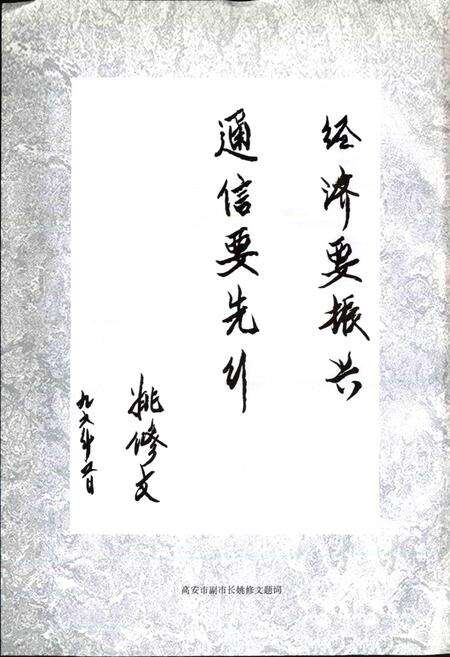 经济要振兴
通信要先行
姚修文
九六年五月
高安市副市长姚修文题词